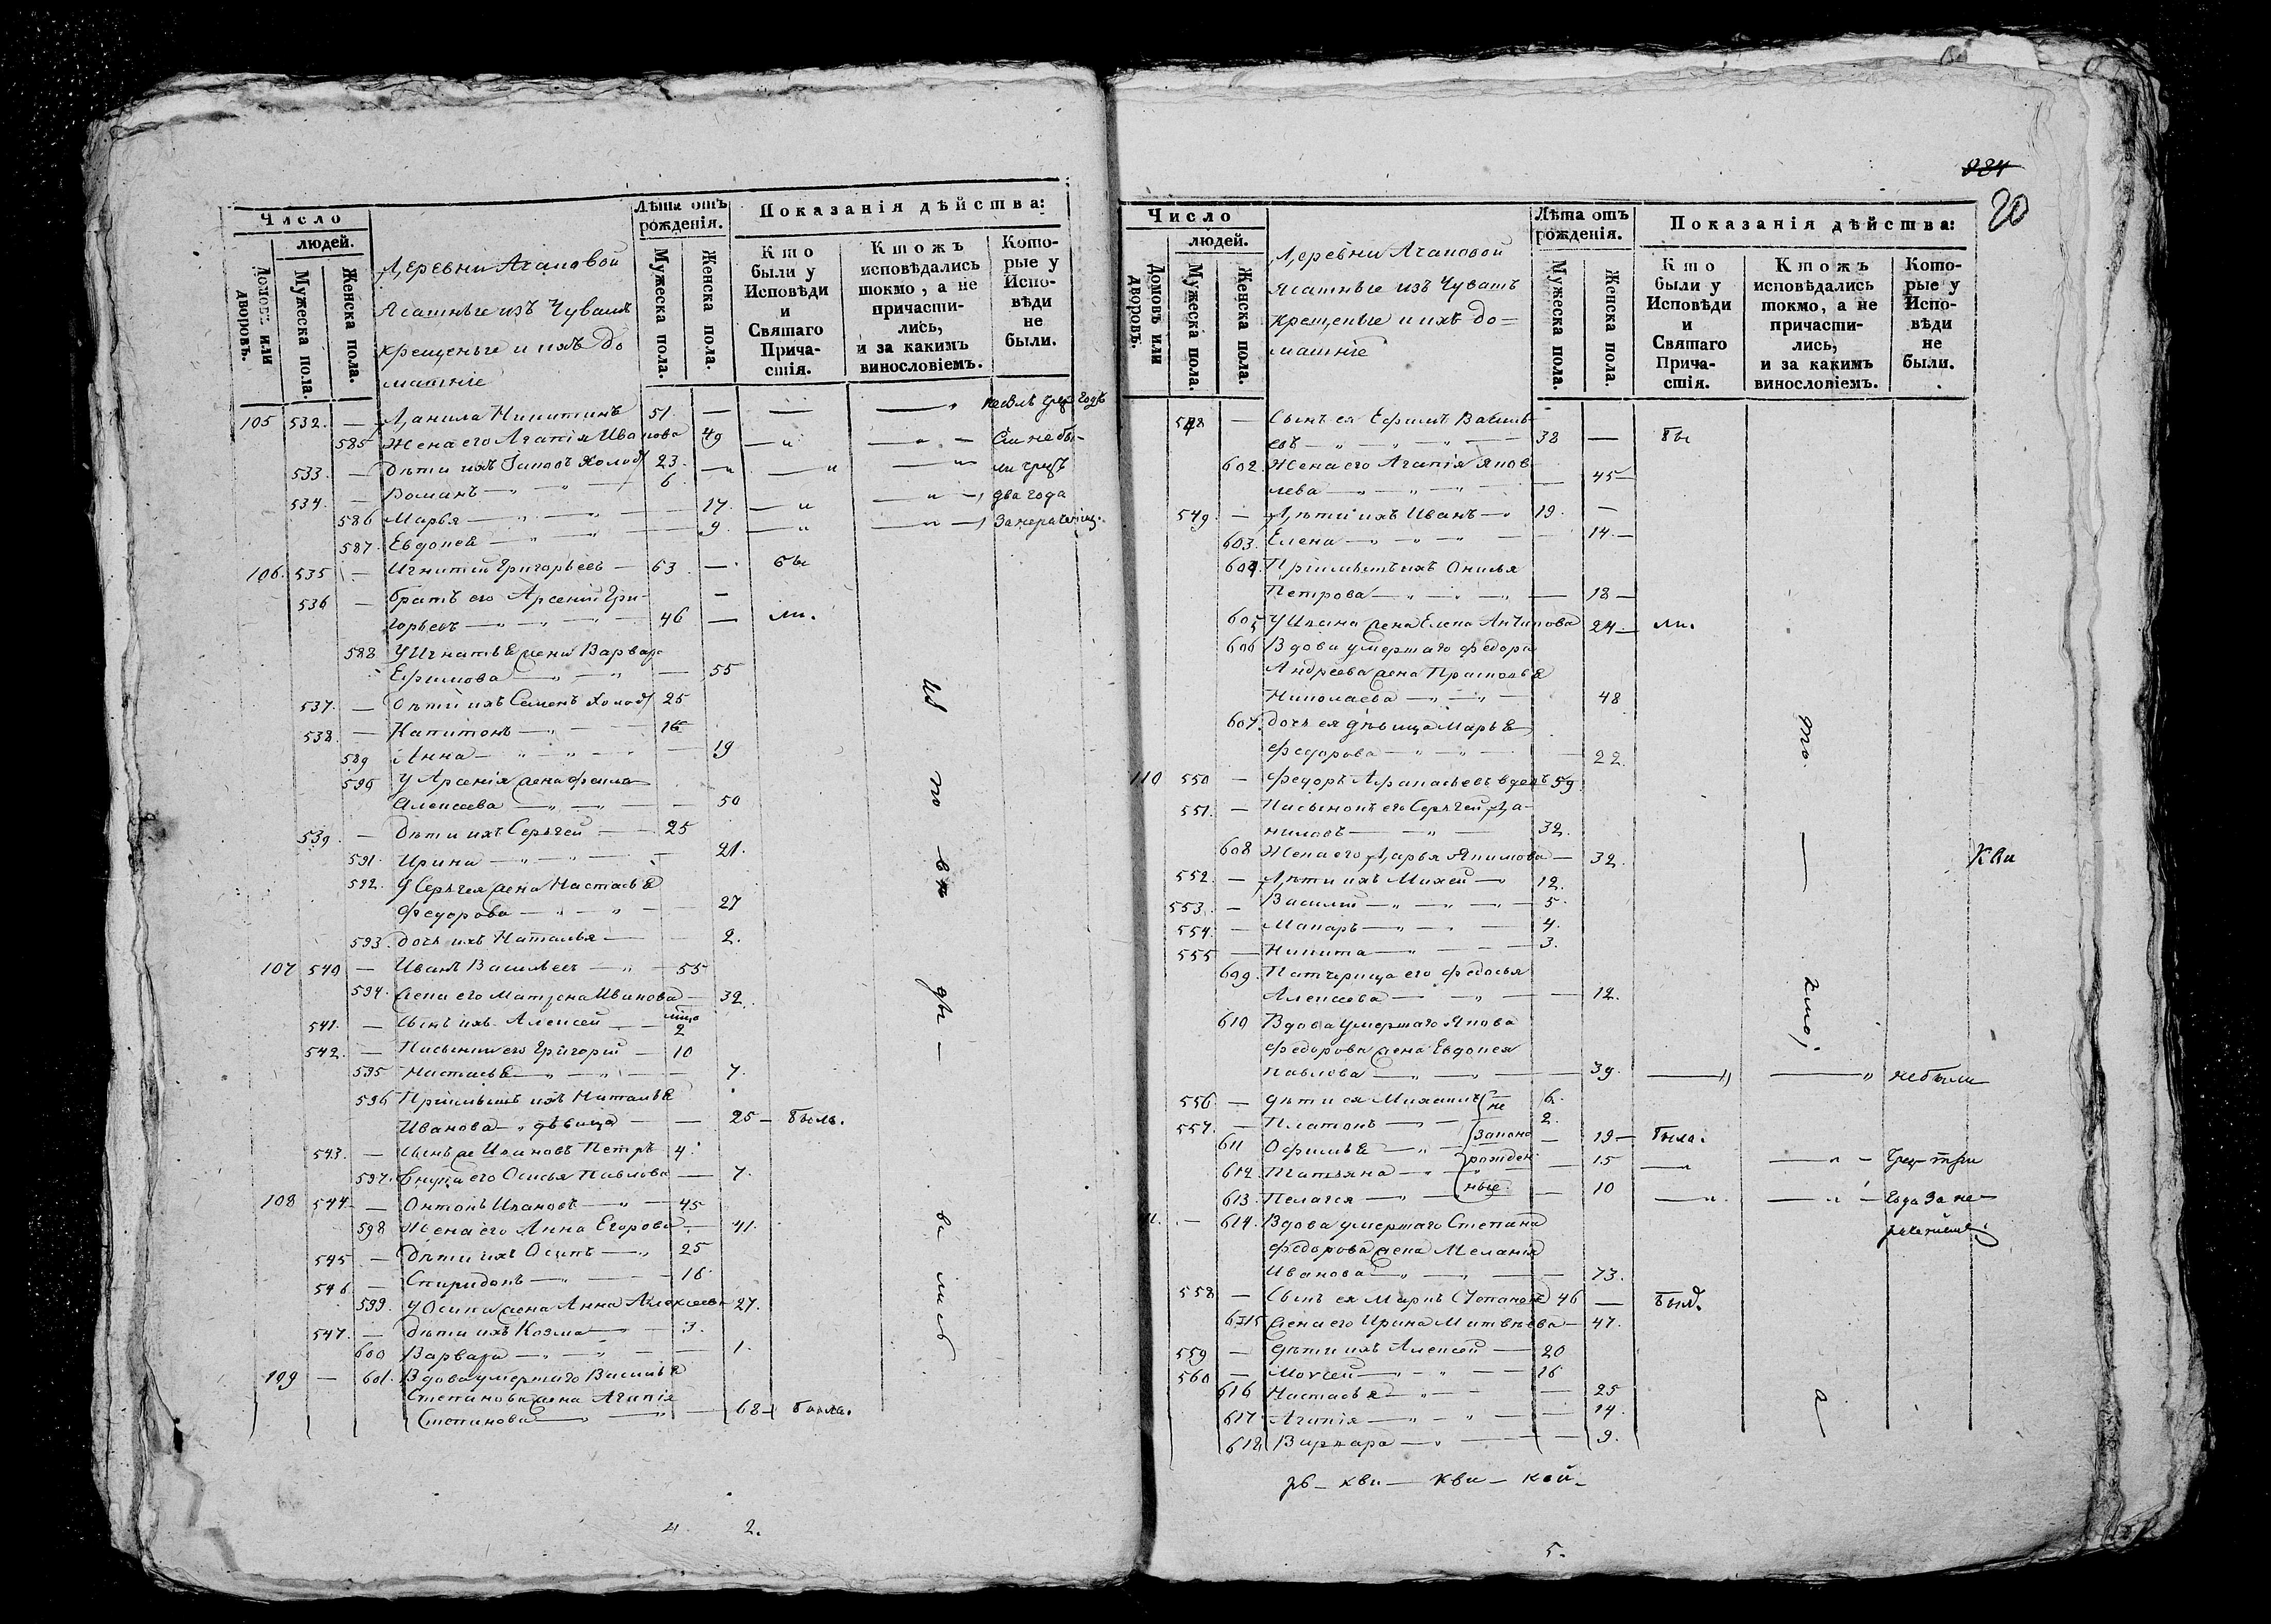 Число
людей.
Домовъ или дворовъ.
Мужеска пола.
Женска пола.
Деревни Агановой
Ясашные изъ Чувашъ
крещеные и ихъ до
машніе
Лѣта отъ рожденія.
Мужеска пола.
Женска пола.
Показанія дѣйства:
Кто были у Исповѣди и Святаго Причастія.
Ктожъ исповѣдались токмо, а не причастились, и за какимъ винословіемъ.
Которые у Исповѣди не были.
105 532. — Данила Никитинъ 51. — —
585 Жена его Агапія Иванова 49 — „ Сии не бы-
533. — Дѣти ихъ холос 23. — „ — „ — „
534. — Романъ — „ — „ — 6. два года
586 Марья — „ — „ — 17. — „
587. Евдокея — „ — „ — 9 — „
106. 535 — Игнатий Григорьевъ — 63. — бы
536 — братъ его Арсений Гри-
горьевъ — „ — „ — 46 — ли.
588 У Игнатья жена Варвара
Ефимова — „ — „ — 55
537. — Дѣти ихъ Семенъ холос 25
538. — Капитонъ — „ — 16
589 Анна — „ — „ — 19
590 У Арсенія жена
Алексеева — „ — „ — 50
539. — Дѣти ихъ Сергѣй — 25
591. Ирина — „ — „ — 21.
592. У Сергея жена Настасья
Федорова — „ — „ — 27
593. дочь ихъ Наталья — 2.
107 540 — Иванъ Васильевъ — „ — 55
594. жена его Матрена Иванова — 32.
541. — Сынъ ихъ Алексей — 2
542. — Пасынки его Григорий — 10
595 Настасья — „ — „ — 7.
596 Приимышъ ихъ Наталья
Иванова — „ дѣвица — 25 — была.
543. — Петръ 4.
597. внука его Павлова — 7.
108 544 — Онтонъ Ивановъ — „ — 45
598 Жена его Анна Егорова — 41.
545 — Дѣти ихъ Осипъ — „ 25
546 — Спиридонъ — „ — 16
599. У Осипа жена Анна Алексеева 27.
547. — Дѣти ихъ Козма — 3.
600 Варвара — „ — „ — 1.
109 — 601. Вдова умершаго Василья
Степанова жена Агапія
Степанова — „ — 68 — была.
исповѣды-
вались
4. 2.
924
20
Число
людей.
Домовъ или дворовъ.
Мужеска пола.
Женска пола.
Деревни Агановой
Ясашные изъ Чувашъ
крещеные и ихъ до=
машніе
Лѣта отъ рожденія.
Мужеска пола.
Женска пола.
Показанія дѣйства:
Кто были у Исповѣди и Святаго Причастія.
Ктожъ исповѣдались токмо, а не причастились, и за какимъ винословіемъ.
Которые у Исповѣди не были.
548 — Сынъ ея Ефимъ Василь-
евъ — „ — „ — „ — 38 — бы
602 Жена его Агапія Яков-
лева — „ — „ — „ — 45 —
549. — Дѣти ихъ Иванъ — „ 19. —
603. Елена — „ — „ — „ — 14. —
604. Приимышъ ихъ
Петрова — „ — „ — „ — 18 —
605 У Ивана жена Елена Антипова 24 — ли.
606 Вдова умершаго Федора
Андреева жена Прасковья
Николаева — „ — „ — 48
607. дочь ея дѣвица Марья
Федорова — „ — „ — 22.
110 550 — Федоръ Афанасьевъ вдовъ 59.
551. — Пасынокъ его Сергей Да-
ниловъ — „ — 32.
608 Жена его Дарья Якимова — 32.
552. — Дѣти ихъ Михей — 12.
553. — Василий — „ — „ — „ 5.
554. — Макаръ — „ — „ — 4.
555 — Никита — „ — 3.
609. Патчерица его Федосья
Алексеева — „ — 12.
610 Вдова умершаго Якова
Федорова жена Евдокея
Павлова — „ — „ — 39. — „ — „ не были
556 — дѣти ея Михаилъ 6.
557. — Платонъ — „ — 2.
611 Офимья — „ 19 — была.
612. Татьяна — „ 15 — „ — „ —
613. Пелагея — „ 10 — „ — „ — года за не-
не законо рожденные
— 614. Вдова умершаго Степана
Федорова жена Меланія
Иванова — „ — „ — 73.
558 — Сынъ ея Маркъ Степановъ 46 — был.
615 жена его Ирина Матвѣева — 47.
559 — Дѣти ихъ Алексей — 20
560 — Мосей — „ — „ — 16
616 Настасья — „ — 25
617. Агапія — „ — „ — 14.
618 Варвара — „ — 9.
5.